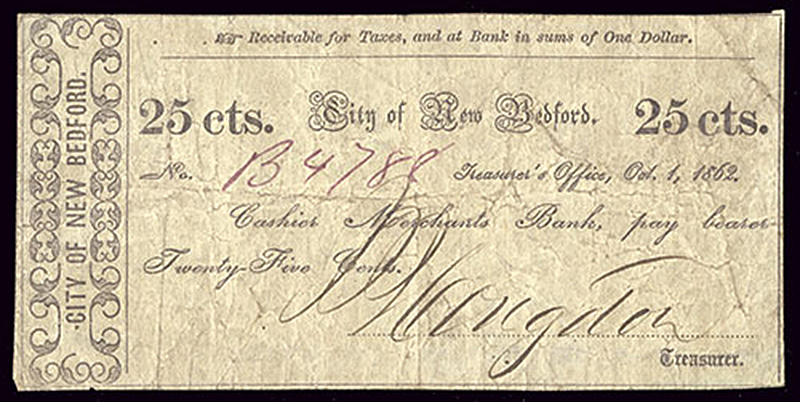 Receivable for Taxes, and at Bank in sums of One Dollar.
25 cts. City of New Bedford. 25 cts.
No. B 4788 Treasurer's Office, Oct. 1, 1862.
Cashier Merchants Bank, pay bearer
Twenty-Five Cents.
Congdon
Treasurer.
CITY OF NEW BEDFORD.